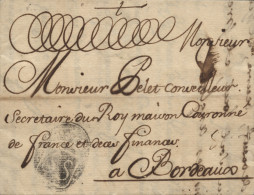 Monsieur
Monsieur Pelet Conseilleur
Secretaire du Roy maison Couronne
de france et de ses finances
a Bordeaux